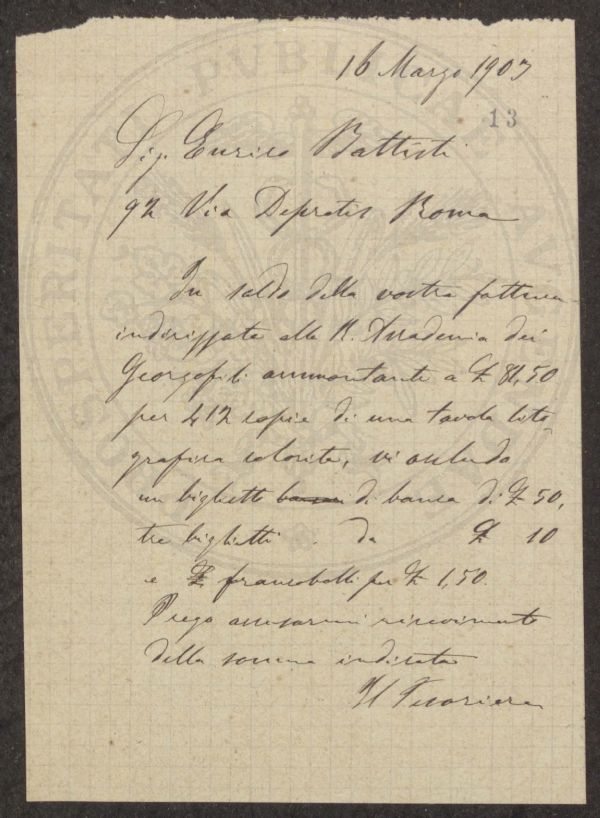 16 Marzo 1903
13
Sig. Enrico Battisti
92 Via Depretis Roma
In saldo della vostra fattura
indirizzata alla R. Accademia dei
Georgofili ammontante a £ 81,50
per 412 copie di una tavola lito
grafica colorita, vi accludo
un biglietto di banca di £ 50,
tre biglietti da £ 10
e francobolli per £ 1,50.
Prego accusarmi ricevimento
della somma indicata
Il Tesoriere
PROSPERITATI PUBLICAE AUGENDAE